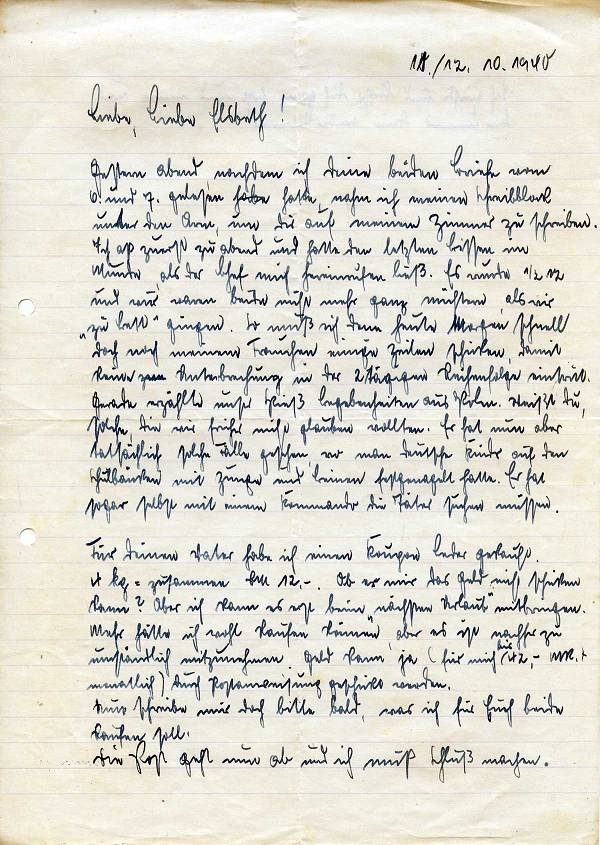 11./12. 10. 1940
Liebe, liebe Elsbeth!
Gestern abend nachdem ich deine beiden Briefe vom
6. und 7. gelesen habe hatte, nahm ich meinen Schreibblock
unter den Arm, um dir auf meinem Zimmer zu schreiben.
Ich aß zuerst zu abend und hatte den letzten Bissen im
Munde, als der Chef mich hereinrufen ließ. Es wurde 1/2 12
und wir waren beide nicht mehr ganz nüchtern, als wir
„zu Bett" gingen. So muß ich denn heute Morgen schnell
doch noch meinem Frauchen einige Zeilen schicken, damit
keine Unterbrechung in der 2tägigen Reihenfolge eintritt.
Gerade erzählte unser Begebenheiten aus Polen. Weißt du,
solche, die wir früher nicht glauben wollten. Er hat nun aber
tatsächlich solche Fälle gesehen wo man deutsche Kinder auf den
Schulbänken mit Zunge und Beinen festgenagelt hatte. Er hat
sogar selbst mit einem Kommando die Täter suchen müssen.
Für deinen Vater habe ich einen Koupon Leder gekauft.
4 kg = zusammen RM 12,-. Ob er mir das Geld nicht schicken
kann? Aber ich kann es erst beim nächsten Urlaub mitbringen.
Mehr hätte ich wohl kaufen können, aber es ist nachher zu
umständlich mitzunehmen. Geld kann ja (für mich bis 42,- RM.
monatlich) durch Postanweisung geschickt werden.
Nun schreibe mir doch bitte bald, was ich für Euch beide
kaufen soll.
Die Post geht nun ab und ich muß Schluß machen.